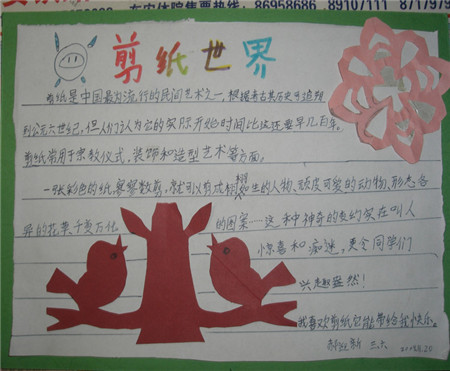 东安体院售票热线：86958686 8910/111 8717979
剪纸世界
剪纸是中国最为流行的民间艺术之一，根据考古其历史可追朔
到公元六世纪，但人们认为它的实际开始时间比这还要早几百年。
剪纸常用于宗教仪式，装饰和造型艺术等方面。
一张彩色的纸寥寥数剪，就可以剪成栩栩如生的人物、顽皮可爱的动物、形态各
异的花草、千变万化 的图案……这种神奇的 实在叫人
惊喜和痴迷，更令同学们
兴趣盎然！
我喜欢剪纸它能带给我快乐。
三六 2009.6.20